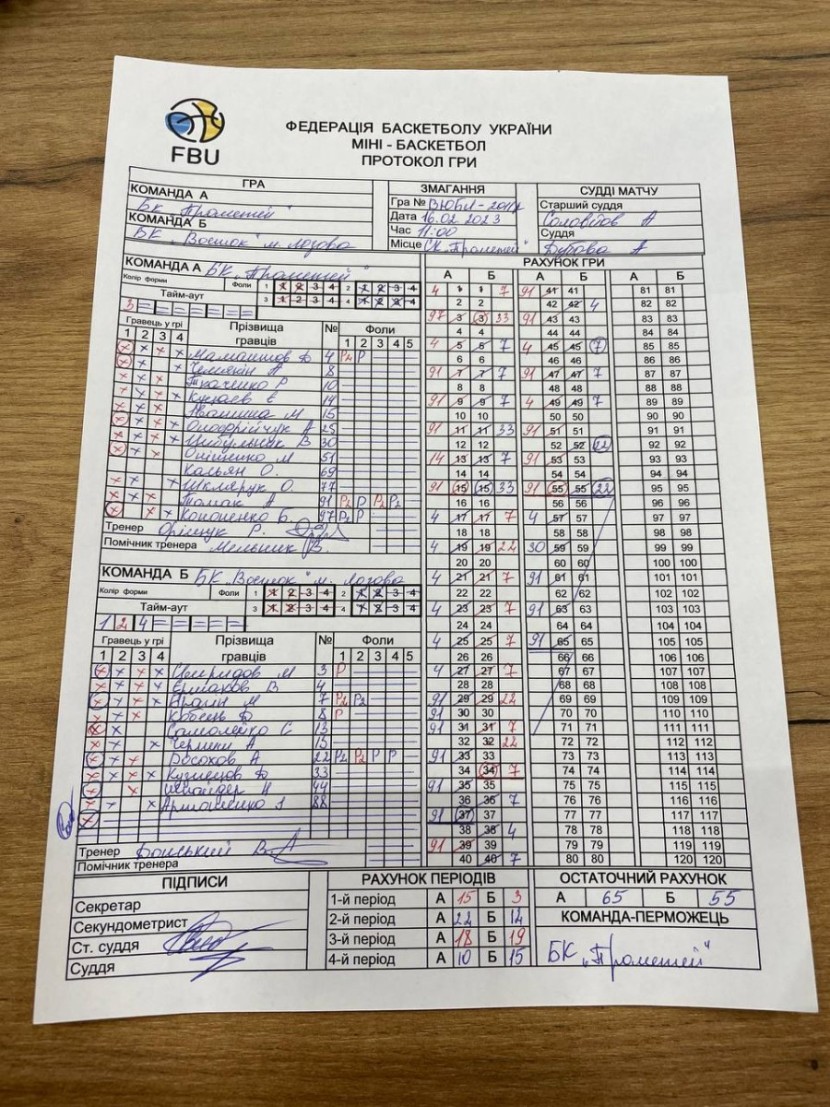 FBU
ФЕДЕРАЦІЯ БАСКЕТБОЛУ УКРАЇНИ
МІНІ - БАСКЕТБОЛ
ПРОТОКОЛ ГРИ
ГРА
КОМАНДА А
БК "Прометей"
КОМАНДА Б
БК "Восток" м. Лозова
ЗМАГАННЯ
Гра № ВЮБЛ-2011
Дата 16.02 2023
Час 11:00
Місце СК "Прометей"
СУДДІ МАТЧУ
Старший суддя
Суддя
КОМАНДА А БК "Прометей"
Колір форми Фоли 1 1 2 3 4 2 1 2 3 4
Тайм-аут 3 1 2 3 4 4 1 2 3 4
3
Гравець у грі Прізвища гравців № Фоли
1 2 3 4 1 2 3 4 5
4 P2 P
8
Ткаченко Р 10
14
15
25
Цибульник В 30
51
Кальян О. 69
Шклярук О. 77
91 P2 P P2 P2
Кононенко Б. 97 P2 P
Тренер
Помічник тренера Мельник В.
КОМАНДА Б БК "Восток" м. Лозова
Колір форми Фоли 1 1 2 3 4 2 1 2 3 4
Тайм-аут 3 1 2 3 4 4 1 2 3 4
1 2 4
Гравець у грі Прізвища гравців № Фоли
1 2 3 4 1 2 3 4 5
Свиридов М 3 P
Єрмаков В 4
7 P2 P2
8 P
Самоленко Є 13
15
22 P2 P2 P P
Кузнецов 33
Шнайдер 44
88
Тренер
Помічник тренера
РАХУНОК ГРИ
А Б А Б А Б
4 1 1 7 91 41 41 81 81
2 2 42 42 4 82 82
97 3 3 33 91 43 43 83 83
4 4 44 44 84 84
4 5 5 7 4 45 45 7 85 85
6 6 46 46 86 86
91 7 7 7 91 47 47 7 87 87
8 8 48 48 88 88
91 9 9 7 4 49 49 7 89 89
10 10 50 50 90 90
91 11 11 33 91 51 51 91 91
12 12 52 52 22 92 92
14 13 13 7 91 53 53 93 93
14 14 54 54 94 94
91 15 15 33 91 55 55 22 95 95
16 16 56 56 96 96
4 17 17 7 4 57 57 97 97
18 18 58 58 98 98
4 19 19 22 30 59 59 99 99
20 20 60 60 100 100
4 21 21 7 91 61 61 101 101
22 22 62 62 102 102
4 23 23 7 91 63 63 103 103
24 24 64 64 104 104
4 25 25 7 91 65 65 105 105
26 26 66 66 106 106
4 27 27 7 67 67 107 107
28 28 68 68 108 108
91 29 29 22 69 69 109 109
91 30 30 70 70 110 110
91 31 31 7 71 71 111 111
32 32 22 72 72 112 112
91 33 33 73 73 113 113
34 34 7 74 74 114 114
91 35 35 75 75 115 115
36 36 7 76 76 116 116
91 37 37 77 77 117 117
38 38 4 78 78 118 118
91 39 39 79 79 119 119
40 40 7 80 80 120 120
ПІДПИСИ
Секретар
Секундометрист
Ст. суддя
Суддя
РАХУНОК ПЕРІОДІВ
1-й період А 15 Б 3
2-й період А 22 Б 14
3-й період А 18 Б 19
4-й період А 10 Б 15
ОСТАТОЧНИЙ РАХУНОК
А 65 Б 55
КОМАНДА-ПЕРМОЖЕЦЬ
БК "Прометей"